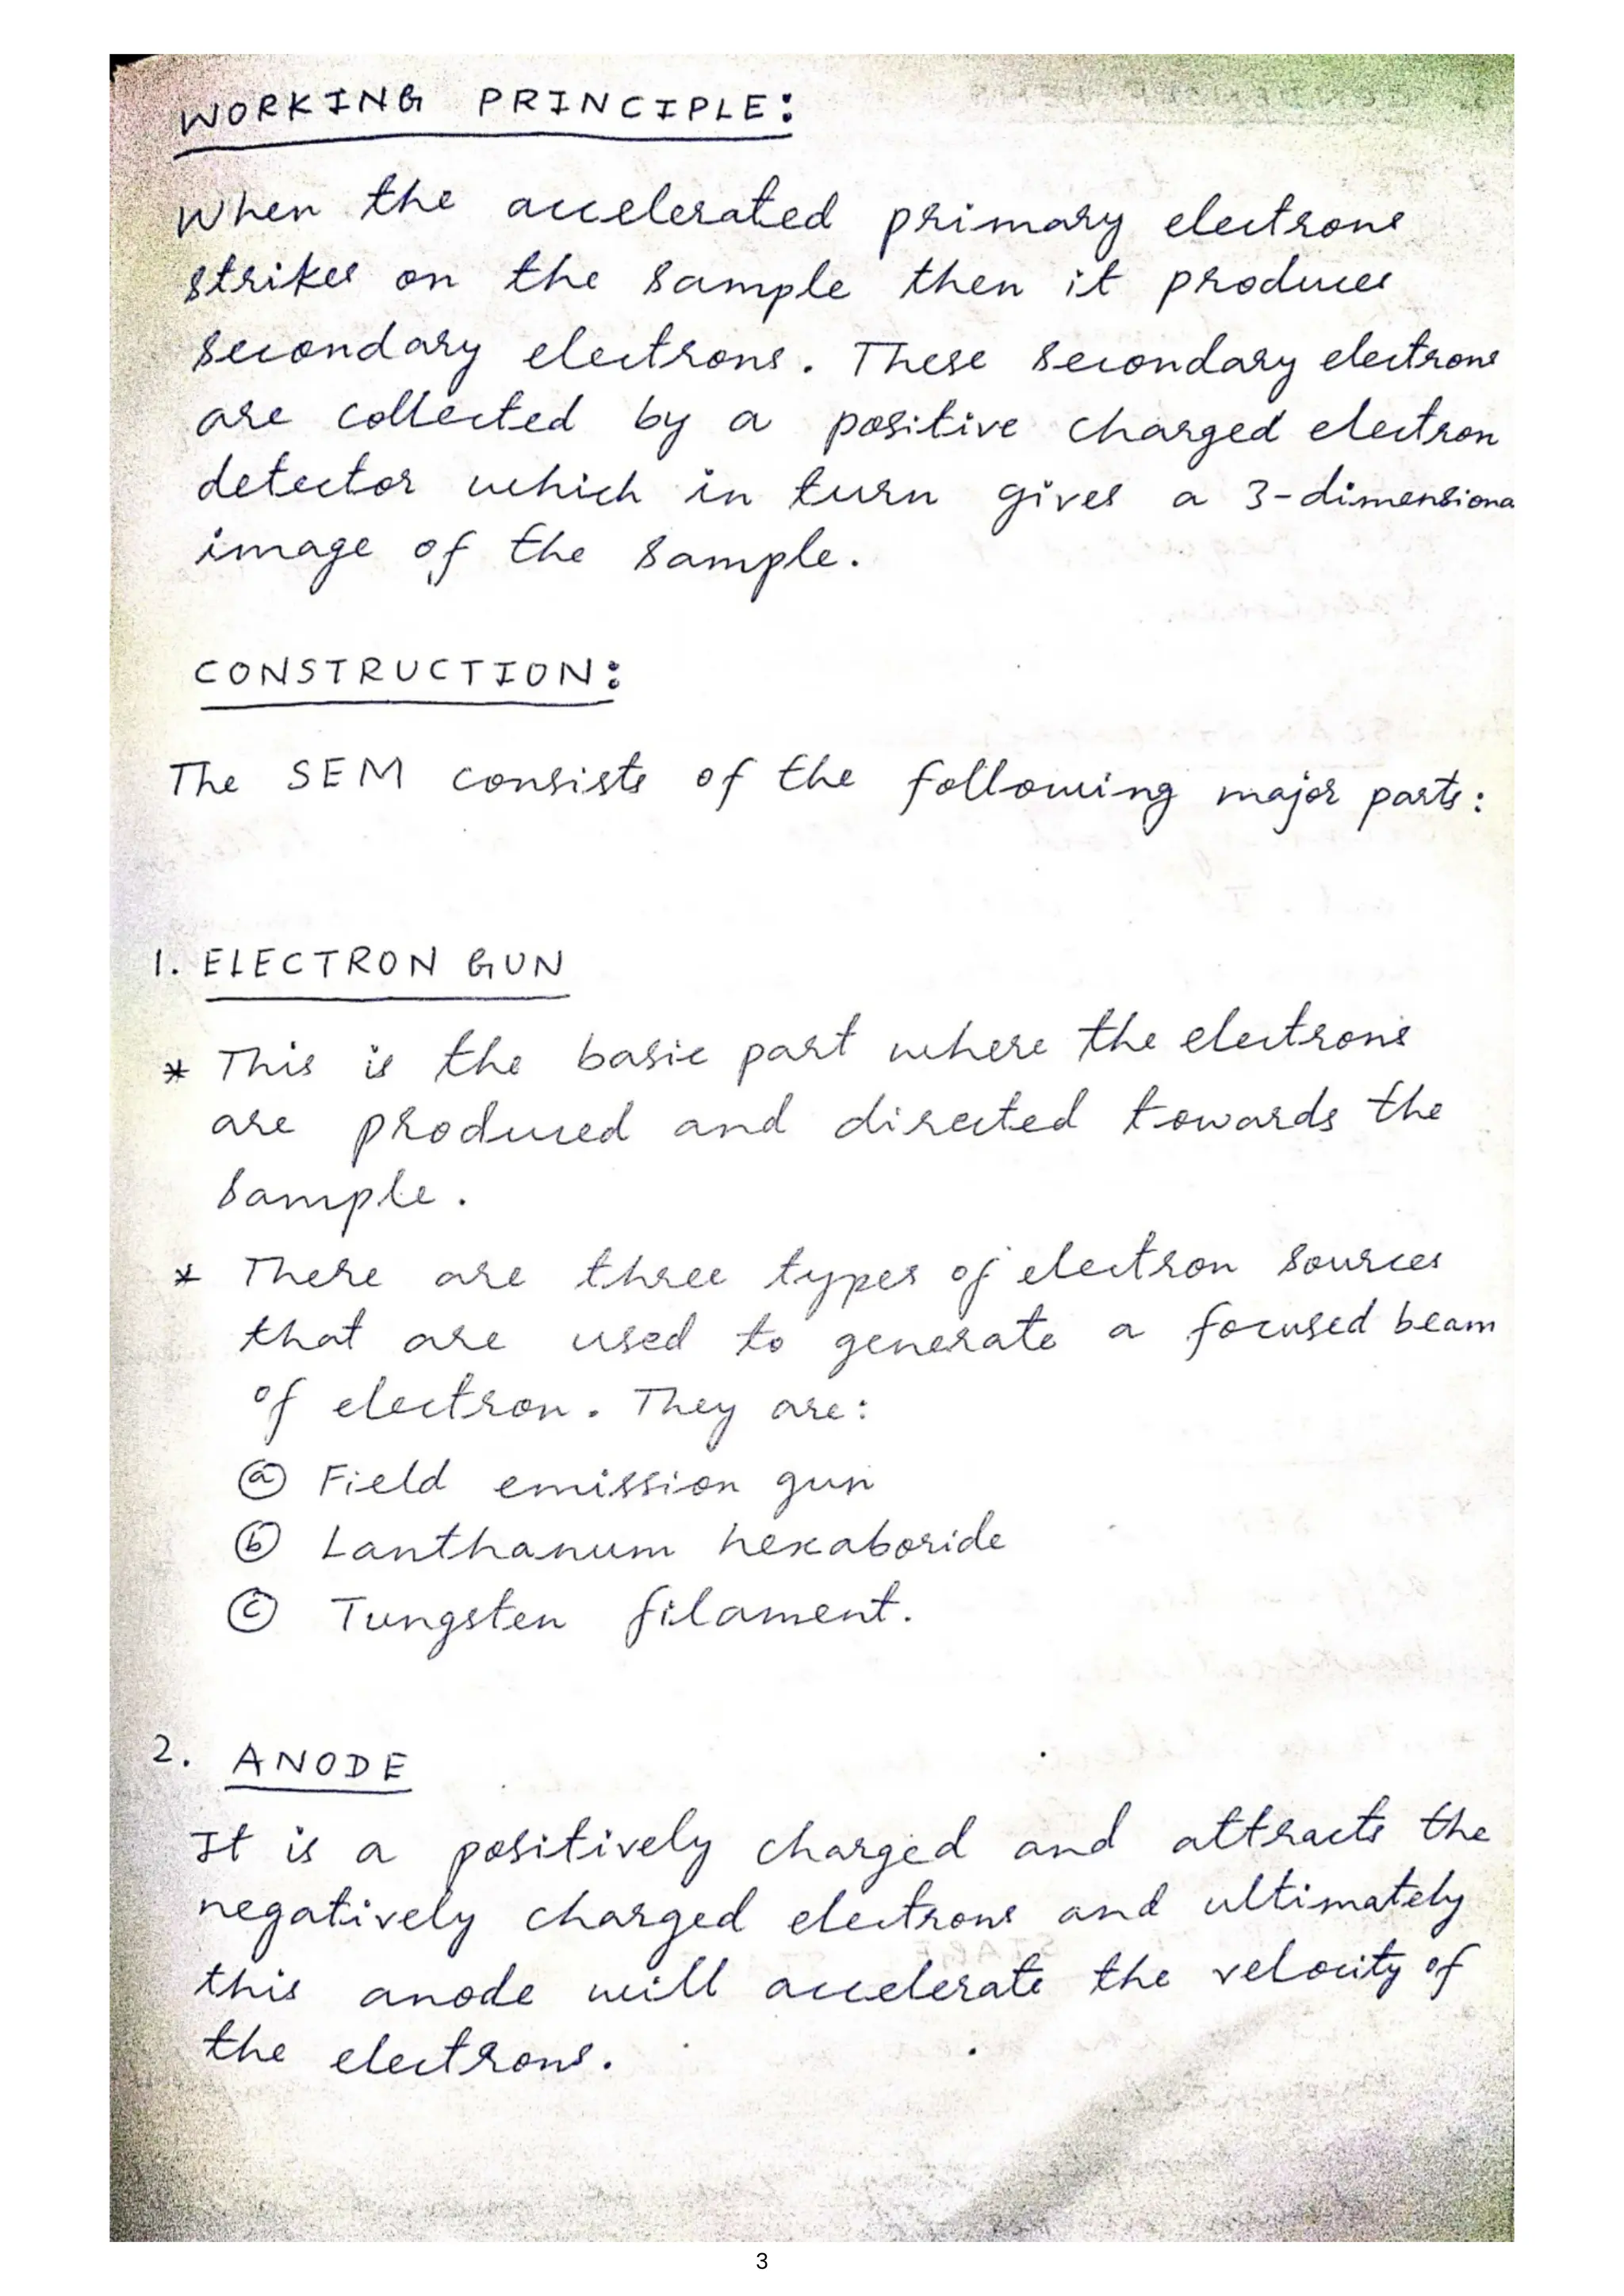 WORKING PRINCIPLE:
When the accelerated primary electrons
strikes on the sample then it produces
secondary electrons. These secondary electrons
are collected by a positive charged electron
detector which in turn gives a 3-dimensiona
image of the sample.
CONSTRUCTION:
The SEM consists of the following major parts:
1. ELECTRON GUN
* This is the basic part where the electrons
are produced and directed towards the
sample.
* There are three types of electron sources
that are used to generate a focused beam
of electron. They are:
ⓐ Field emission gun
ⓑ Lanthanum hexaboride
ⓒ Tungsten filament.
2. ANODE
It is a positively charged and attracts the
negatively charged electrons and ultimately
this anode will accelerate the velocity of
the electrons.
3